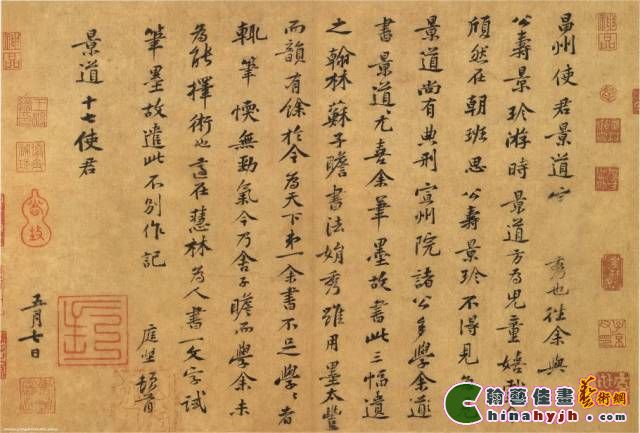 州使君景道宗秀也往余與
公壽景珍游時景道方為兒童嬉
頎然在朝班思公壽景珍不得見
景道尚有典刑宣州院諸公多學余
書景道尤喜余筆墨故書此三幅遺
之翰林蘇子瞻書法娟秀雖用墨太豐
而韻有餘於今為天下第一余書不足學學者
輒筆愞無勁氣今乃舍子瞻而學余未
為能擇術也適在慧林為人書一文字試
筆墨故遣此不別作記
庭堅頓首
景道十七使君
五月七日
翰藝佳畫藝術網
chinahyjh.com